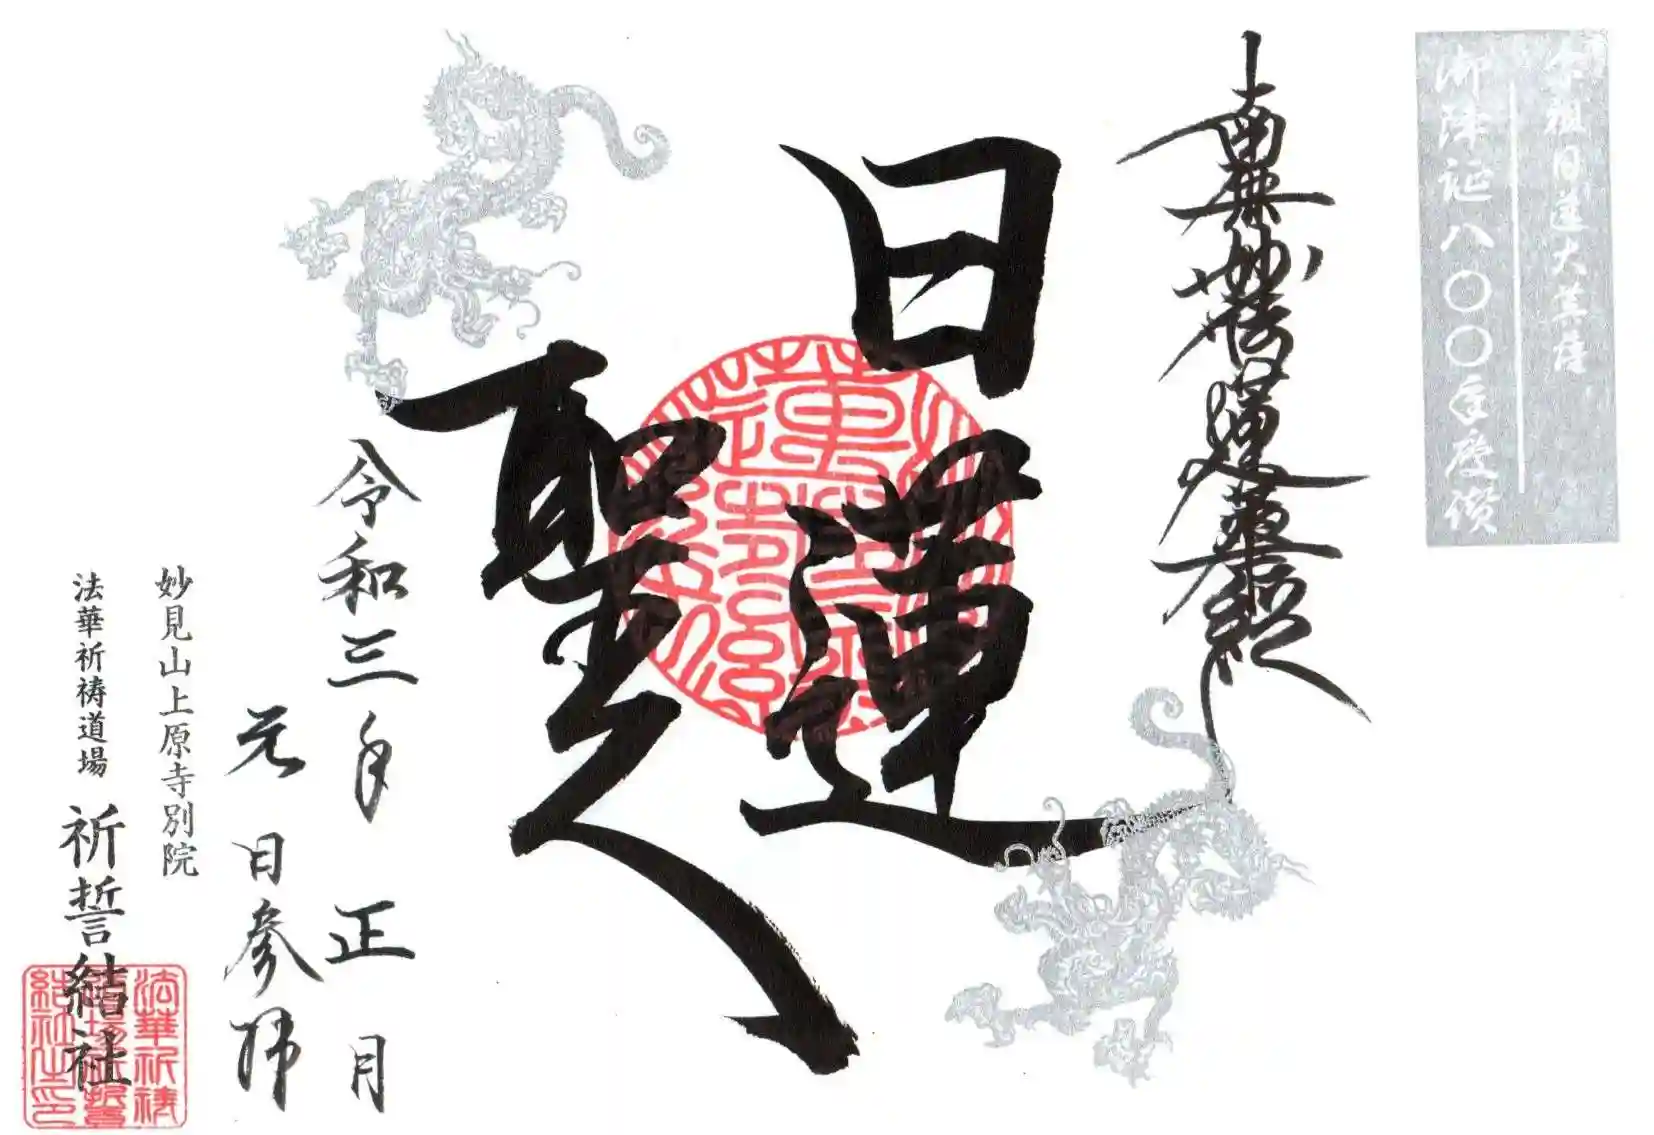 宗祖日蓮大菩薩
御降誕八〇〇年慶讃
南無妙法蓮華経
日蓮
聖人
令和三年正月
元日参拝
妙見山上原寺別院
法華祈祷道場
祈誓結社